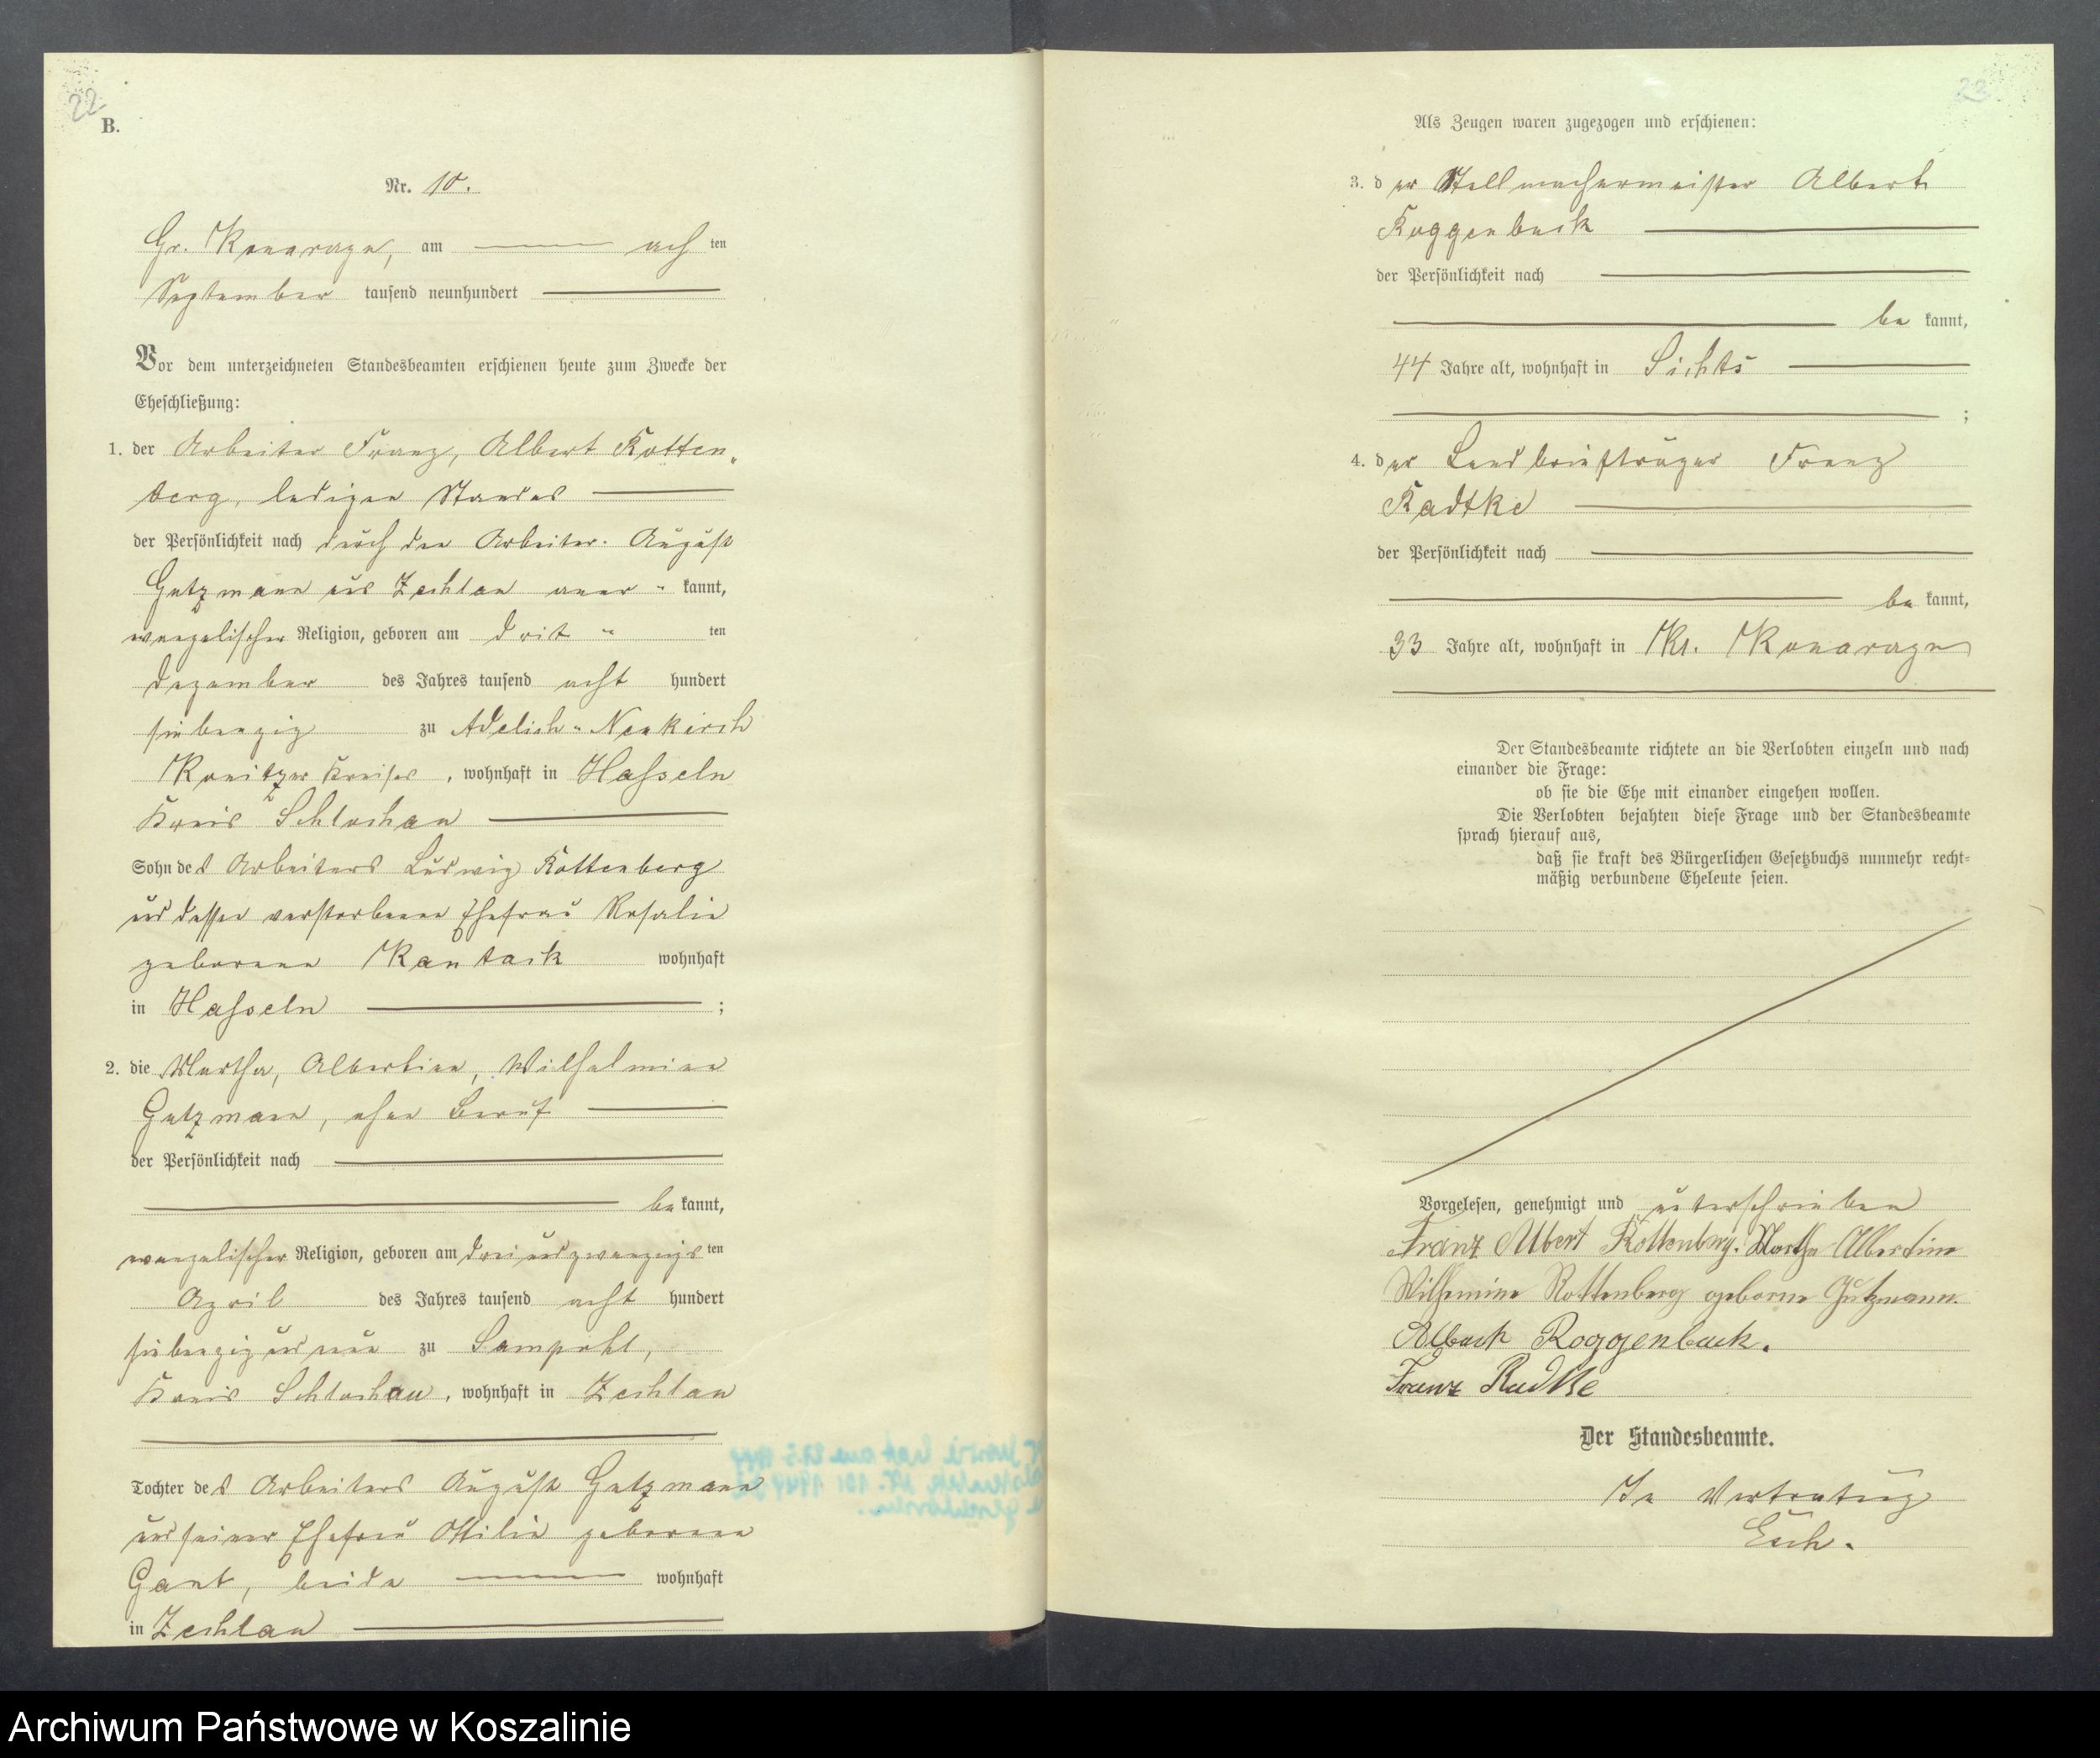 22
B.
Nr. 10.
Gr. Konarzyn, am ach ten
September tausend neunhundert
Vor dem unterzeichneten Standesbeamten erschienen heute zum Zwecke der
Eheschließung:
1. der Arbeiter Franz, Albert Rotten-
berg, ledigen Standes
der Persönlichkeit nach durch den Arbeiter August
Gutzmann aus Zechlau aner- kannt,
evangelischer Religion, geboren am drit- ten
Dezember des Jahres tausend acht hundert
siebenzig zu Adelich-Neukirch
Konitzer Kreises, wohnhaft in Hasseln
Kreis Schlochau
Sohn des Arbeiters Ludwig Rottenberg
und dessen verstorbenen Ehefrau Rosalie
geborenen Kantack wohnhaft
in Hasseln ;
2. die Martha, Albertine, Wilhelmine
Gutzmann, ohne Beruf
der Persönlichkeit nach
be kannt,
evangelischer Religion, geboren am dreiundzwanzigs ten
April des Jahres tausend acht hundert
siebenzig und neun zu Sampohl,
Kreis Schlochau, wohnhaft in Zechlau
Tochter des Arbeiters August Gutzmann
und seiner Ehefrau Ottilie geborenen
Gant, beide wohnhaft
in Zechlau
23
Als Zeugen waren zugezogen und erschienen:
3. der Stellmachermeister Albert
Roggenbuck
der Persönlichkeit nach
be kannt,
44 Jahre alt, wohnhaft in Sichts
;
4. der Landbriefträger Franz
Radtke
der Persönlichkeit nach
be kannt,
33 Jahre alt, wohnhaft in Kl. Konarzyn
Der Standesbeamte richtete an die Verlobten einzeln und nach
einander die Frage:
ob sie die Ehe mit einander eingehen wollen.
Die Verlobten bejahten diese Frage und der Standesbeamte
sprach hierauf aus,
daß sie kraft des Bürgerlichen Gesetzbuchs nunmehr recht-
mäßig verbundene Eheleute seien.
Vorgelesen, genehmigt und unterschrieben
Franz Albert Rottenberg. Martha Albertine
Wilhemine Rottenberg geborne Gutzmann.
Albert Roggenbuck.
Franz Radtke
Der Standesbeamte.
In Vertretung
Esch.
Archiwum Państwowe w Koszalinie